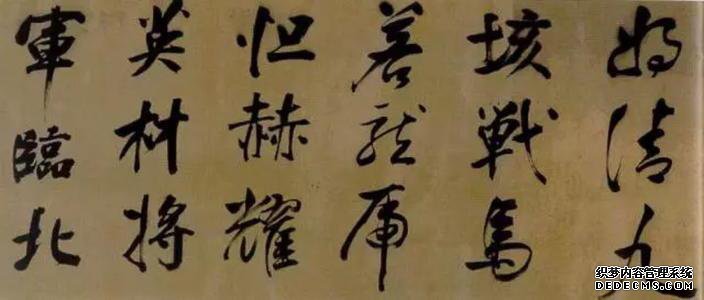 清九
垓戰馬
若龍虎
烜赫耀
英材将
軍臨北
织梦内容管理系统
DEDECMS.COM